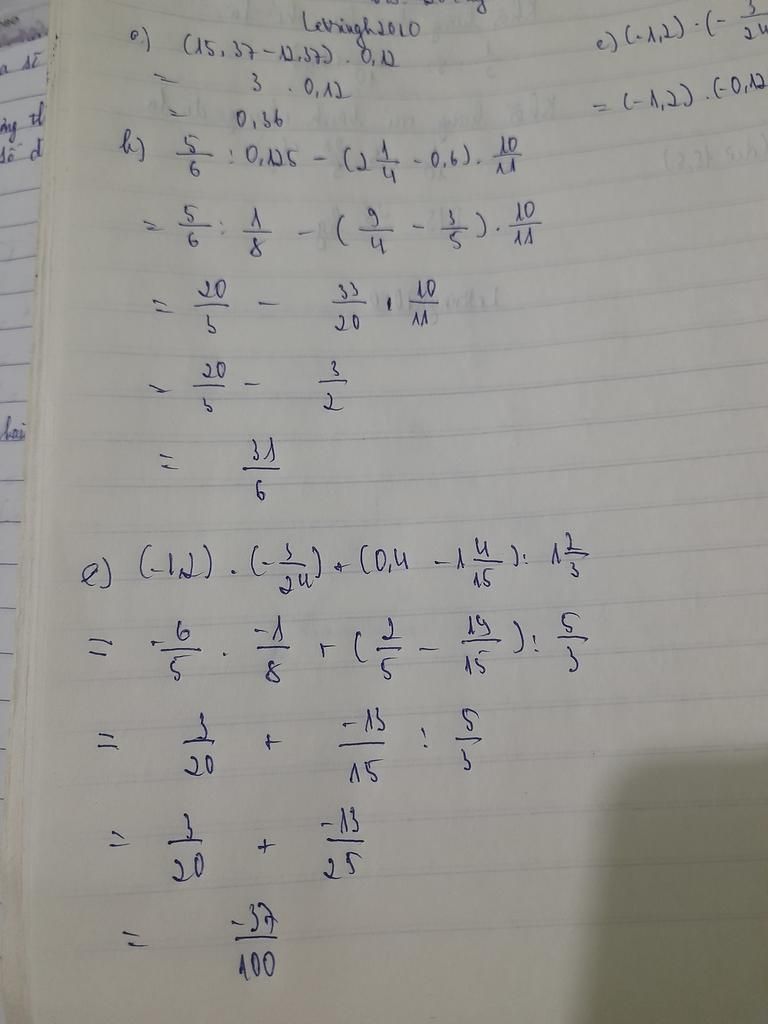 Letringh2010
a) (15,37 - 12,37) . 0,12
= 3 . 0,12
= 0,36
b) \frac{5}{6} : 0,125 - (2\frac{1}{4} - 0,6) . \frac{10}{11}
= \frac{5}{6} : \frac{1}{8} - (\frac{9}{4} - \frac{3}{5}) . \frac{10}{11}
= \frac{20}{3} - \frac{33}{20} . \frac{10}{11}
= \frac{20}{3} - \frac{3}{2}
= \frac{31}{6}
e) (-1,2) . (-\frac{3}{24}) + (0,4 - 1\frac{4}{15}) : 1\frac{2}{3}
= \frac{-6}{5} . \frac{-1}{8} + (\frac{2}{5} - \frac{19}{15}) : \frac{5}{3}
= \frac{3}{20} + \frac{-13}{15} : \frac{5}{3}
= \frac{3}{20} + \frac{-13}{25}
= \frac{-37}{100}
c) (-1,2) . (-\frac{3}{24}
= (-1,2) . (-0,12